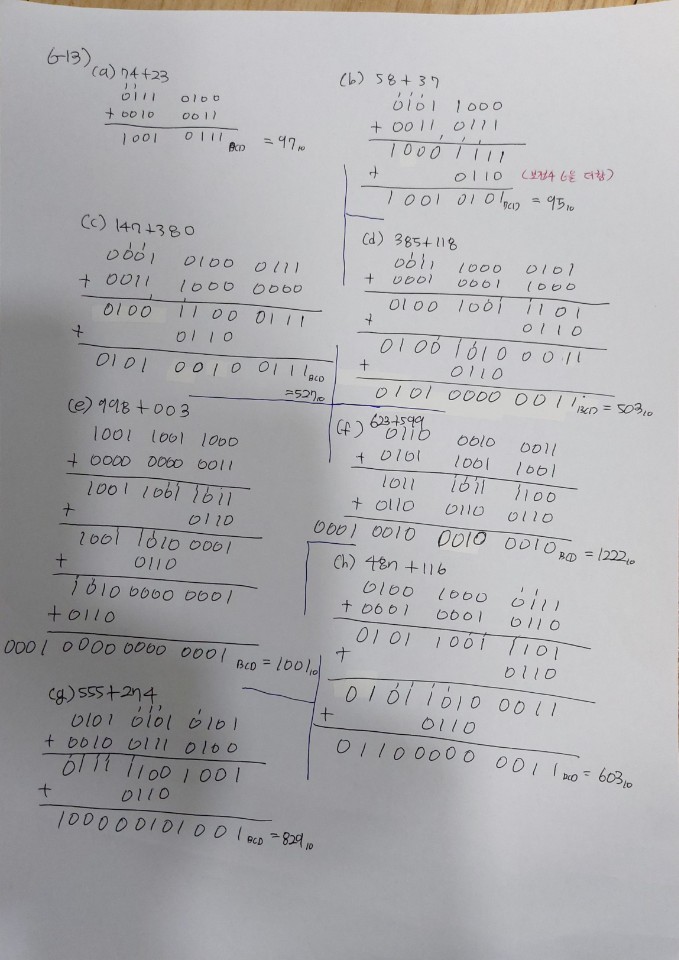 6-13)
(a) 74+23
0111 0100
+ 0010 0011
1001 0111 BCD = 97₁₀
(b) 58+37
0101 1000
+ 0011 0111
1000 1111
+ 0110 (보정수 6을 더함)
1001 0101 BCD = 95₁₀
(c) 147+380
0001 0100 0111
+ 0011 1000 0000
0100 1100 0111
+ 0110
0101 0010 0111 BCD
=527₁₀
(d) 385+118
0011 1000 0101
+ 0001 0001 1000
0100 1001 1101
+ 0110
0100 1010 0011
+ 0110
0101 0000 0011 BCD = 503₁₀
(e) 998+003
1001 1001 1000
+ 0000 0000 0011
1001 1001 1011
+ 0110
1001 1010 0001
+ 0110
1010 0000 0001
+0110
0001 0000 0000 0001 BCD = 1001₁₀
(f) 623+599
0110 0010 0011
+ 0101 1001 1001
1011 1011 1100
+ 0110 0110 0110
0001 0010 0010 0010 BCD = 1222₁₀
(g) 555+274
0101 0101 0101
+ 0010 0111 0100
0111 1100 1001
+ 0110
1000 0010 1001 BCD = 829₁₀
(h) 487+116
0100 1000 0111
+ 0001 0001 0110
0101 1001 1101
+ 0110
0101 1010 0011
+ 0110
0110 0000 0011 BCD = 603₁₀